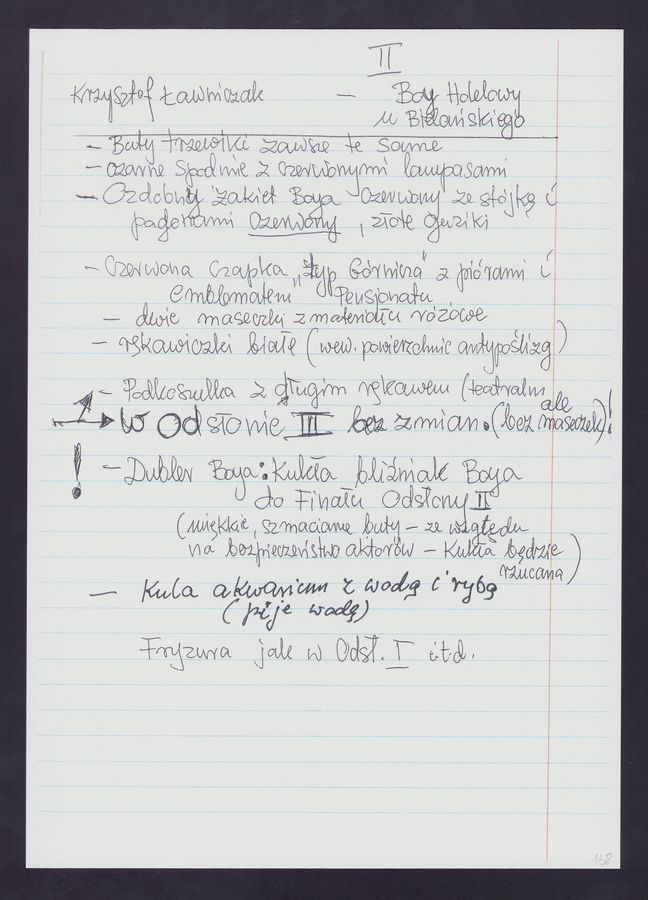 II
Krzysztof Ławniczak — Boy Hotelowy
u Bielańskiego
— Buty trzewiki zawsze te same
— czarne spodnie z czerwonymi lampasami
— Ozdobny żakiet Boya czerwony ze stójką i
pagonami czerwony, złote guziki
— Czerwona czapka „typ Górnicza" z piórami i
emblematem Pensjonatu
— dwie maseczki z materiału różowe
— rękawiczki białe (wew. powierzchnie antypoślizg)
— Podkoszulka z długim rękawem (teatralna
W Odsłonie III bez zmian. (ale bez maseczek)!
! — Dubler Boya: Kukła bliźniak Boya
do Finału Odsłony II
(miękkie, szmaciane buty — ze względu
na bezpieczeństwo aktorów — Kukła będzie
rzucana)
— Kula akwarium z wodą i rybą
(pije wodę)
Fryzura jak w Odsł. I itd.
138